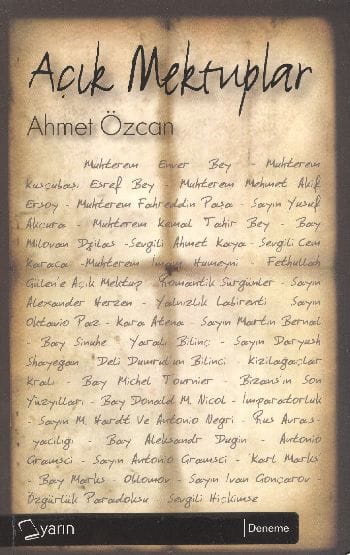 Açık Mektuplar
Ahmet Özcan
Muhterem Enver Bey - Muhterem
Kuşçubaşı Eşref Bey - Muhterem Mehmet Akif
Ersoy - Muhterem Fahreddin Paşa - Sayın Yusuf
Akçura - Muhterem Kemal Tahir Bey - Bay
Milovan Djilas - Sevgili Ahmet Kaya - Sevgili Cem
Karaca - Muhterem İmam Humeyni - Fethullah
Gülen'e Açık Mektup - Romantik Sürgünler - Sayın
Alexander Herzen - Yalnızlık Labirenti - Sayın
Oktavio Paz - Kara Atena - Sayın Martin Bernal
- Bay Sinuhe - Yaralı Bilinç - Sayın Daryush
Shayegan - Deli Dumrul'un Bilinci - Kızılağaçlar
Kralı - Bay Michel Tournier - Bizans'ın Son
Yüzyılları - Bay Donald M. Nicol - İmparatorluk
- Sayın M. Hardt Ve Antonio Negri - Rus Avras-
yacılığı - Bay Aleksandr Dugin - Antonio
Gramsci - Sayın Antonio Gramsci - Karl Marks
- Bay Marks - Oblomov - Sayın Ivan Gonçarov -
Özgürlük Paradoksu - Sevgili Hiçkimse
yarın
Deneme